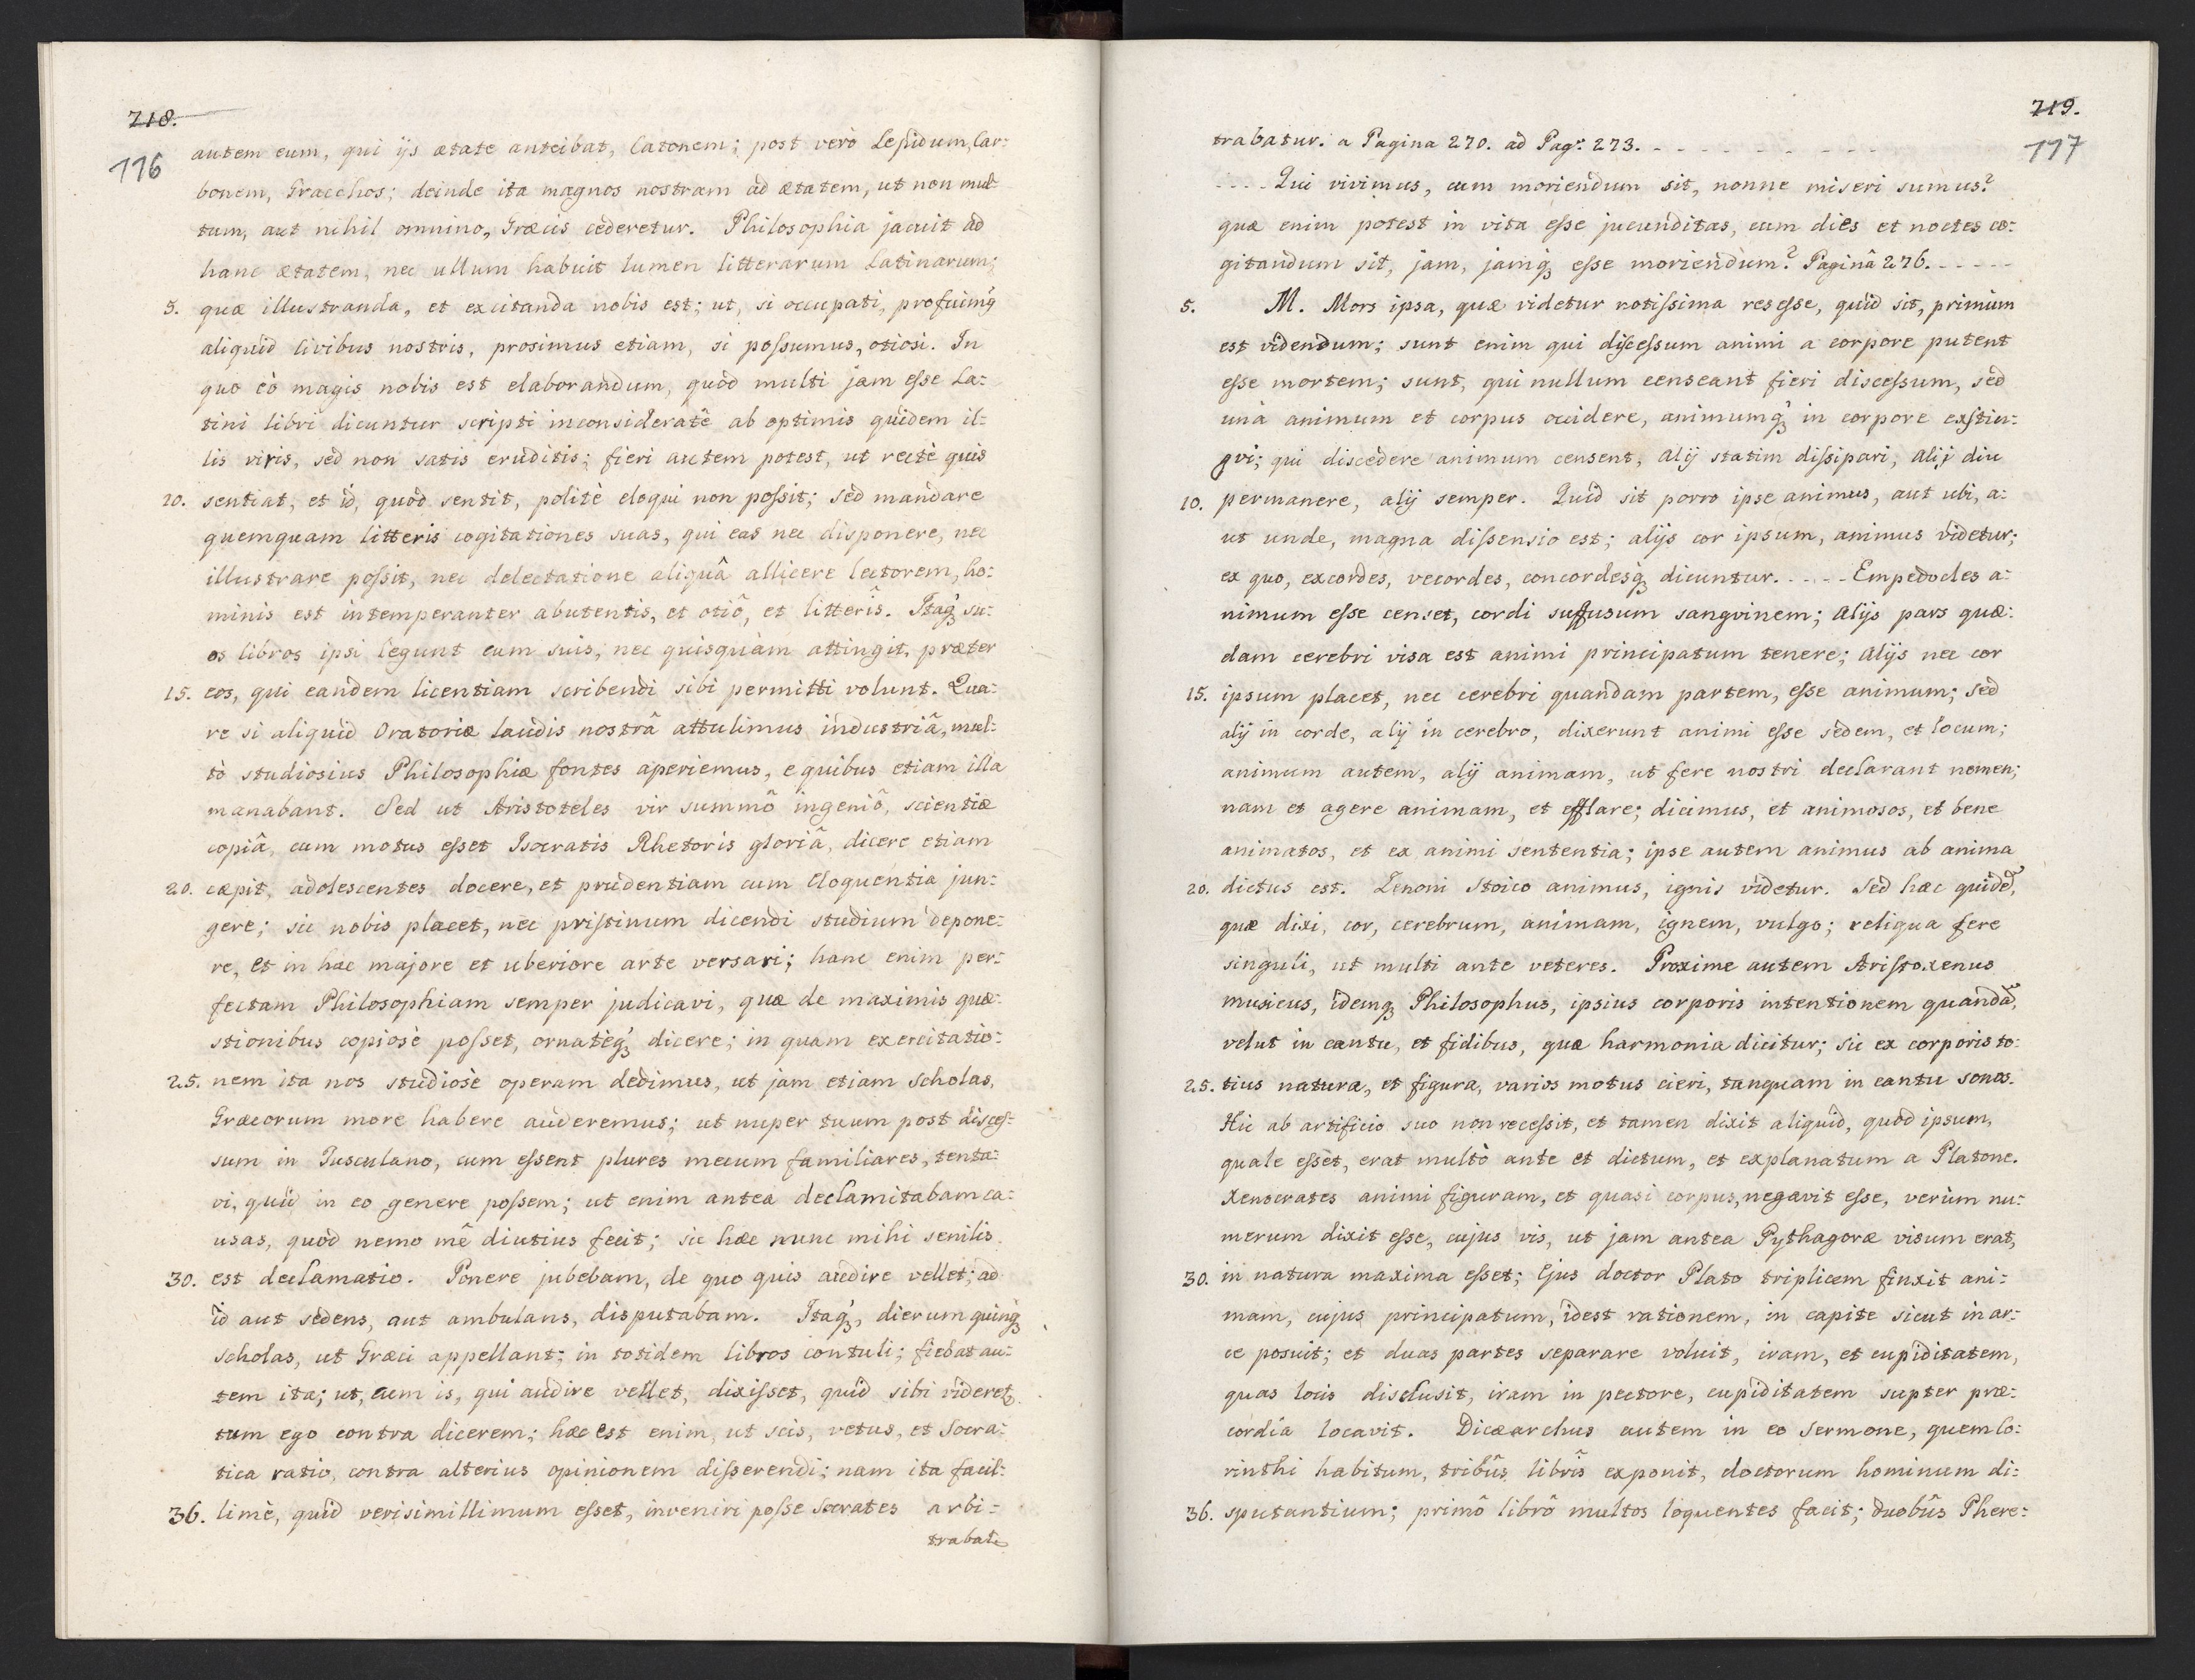 718.
116
autem eum, qui ijs ætate anteibat, Catonem; post verò Lepidum, Car:
bonem, Gracchos; deinde ita magnos nostram ad ætatem, ut non mul:
tum, aut nihil omnino, Græcis cederetur. Philosophia jacuit ad
hanc ætatem, nec ullum habuit lumen litterarum Latinarum;
5. quæ illustranda, et excitanda nobis est; ut, si occupati, profuimq́
aliquid Civibus nostris, prosimus etiam, si possumus, otiosi. In
quo eò magis nobis est elaborandum, quòd multi jam esse La:
tini libri dicuntur scripti inconsideratè ab optimis quidem il:
lis viris, sed non satis eruditis; fieri autem potest, ut rectè quis
10. sentiat, et id, quod sentit, politè eloqui non possit; sed mandare
quemquam litteris cogitationes suas, qui eas nec disponere, nec
illustrare possit, nec delectatione aliquâ allicere lectorem, ho:
minis est intemperanter abutentis, et otiô, et litterîs. Itaqꝫ su:
os libros ipsi legunt cum suis, nec quisquàm attingit, præter
15. eos, qui eandem licentiam scribendi sibi permitti volunt. Qua:
re si aliquid Oratoriæ laudis nostrâ attulimus industriâ, mul:
tò studiosius Philosophiæ fontes aperiemus, e quibus etiam illa
manabant. Sed ut Aristoteles vir summô ingeniô, scientiæ
copiâ, cum motus esset Isocratis Rhetoris gloriâ, dicere etiam
20. cæpit, adolescentes docere, et prudentiam cum Eloquentia jun:
gere; sic nobis placet, nec pristinum dicendi studium depone:
re, et in hac majore et uberiore arte versari; hanc enim per:
fectam Philosophiam semper judicavi, quæ de maximis quæ:
stionibus copiosè posset, ornatèqꝫ dicere; in quam exercitatio:
25. nem ita nos studiosè operam dedimus, ut jam etiam Scholas,
Græcorum more habere auderemus; ut nuper tuum post disces:
sum in Tusculano, cum essent plures mecum familiares, tenta:
vi, quid in eo genere possem; ut enim antea declamitabam ca:
usas, quod nemo mê diutius fecit; sic hæc nunc mihi senilis
30. est declamatio. Ponere jubebam, de quo quis audire vellet; ad
id aut sedens, aut ambulans, disputabam. Itaqꝫ, dierum quinqꝫ
scholas, ut Græci appellant; in totidem libros contuli; fiebat au:
tem ita; ut, cum is, qui audire vellet, dixisset, quid sibi videret,
tum ego contra dicerem; hæc est enim, ut scis, vetus, et Socra:
tica ratio, contra alterius opinionem disserendi; nam ita facil:
36. limè, quid verisimillimum esset, inveniri posse Socrates arbi:
trabatɾ
719.
117
trabatur. a Pagina 270. ad Pag: 273. - - - - - - - - -
- - - - Qui vivimus, cum moriendum sit, nonne miseri sumus?
quæ enim potest in vita esse jucunditas, cum dies et noctes co:
gitandum sit, jam, jamqꝫ esse moriendum? Paginâ 276. - - - - -
5. M. Mors ipsa, quæ videtur notissima res esse, quid sit, primùm
est videndum; sunt enim qui discessum animi a corpore putent
esse mortem; sunt, qui nullum censeant fieri discessum, sed
unà animum et corpus occidere, animumqꝫ in corpore exstin:
gvi; qui discedere animum censent, alij statim dissipari, alij diu
10. permanere, alij semper. Quid sit porro ipse animus, aut ubi, a:
ut unde, magna dissensio est; alijs cor ipsum, animus videtur;
ex quo, excordes, vecordes, concordesqꝫ dicuntur. - - - - Empedocles a:
nimum esse censet, cordi suffusum sangvinem; alijs pars quæ:
dam cerebri visa est animi principatum tenere; alijs nec cor
15. ipsum placet, nec cerebri quandam partem, esse animum; sed
alij in corde, alij in cerebro, dixerunt animi esse sedem, et locum;
animum autem, alij animam, ut fere nostri declarant nomen;
nam et agere animam, et efflare; dicimus, et animosos, et bene
animatos, et ex animi sententia; ipse autem animus ab anima
20. dictus est. Zenoni Stoico animus, ignis videtur. Sed hæc quidẽ,
quæ dixi, cor, cerebrum, animam, ignem, vulgo; reliqua fere
singuli, ut multi ante veteres. Proxime autem Aristoxenus
musicus, idemqꝫ Philosophus, ipsius corporis intentionem quandã,
velut in cantu, et fidibus, quæ harmonia dicitur; sic ex corporis to:
25. tius natura, et figura, varios motus cieri, tanquam in cantu sonos.
Hic ab artificio suo non recessit, et tamen dixit aliquid, quod ipsum,
quale esset, erat multò ante et dictum, et explanatum a Platone.
Xenocrates animi figuram, et quasi corpus, negavit esse, verùm nu:
merum dixit esse, cujus vis, ut jam antea Pythagoræ visum erat,
30. in natura maxima esset; Ejus doctor Plato triplicem finxit ani:
mam, cujus principatum, idest rationem, in capite sicut in ar:
ce posuit; et duas partes separare voluit, iram, et cupiditatem,
quas locis disclusit, iram in pectore, cupiditatem supter præ:
cordia locavit. Dicæarchus autem in eo Sermone, quem Co:
rinthi habitum, tribûs librîs exponit, doctorum hominum di:
36. sputantium; primô librô multos loquentes facit; duobûs Phere: